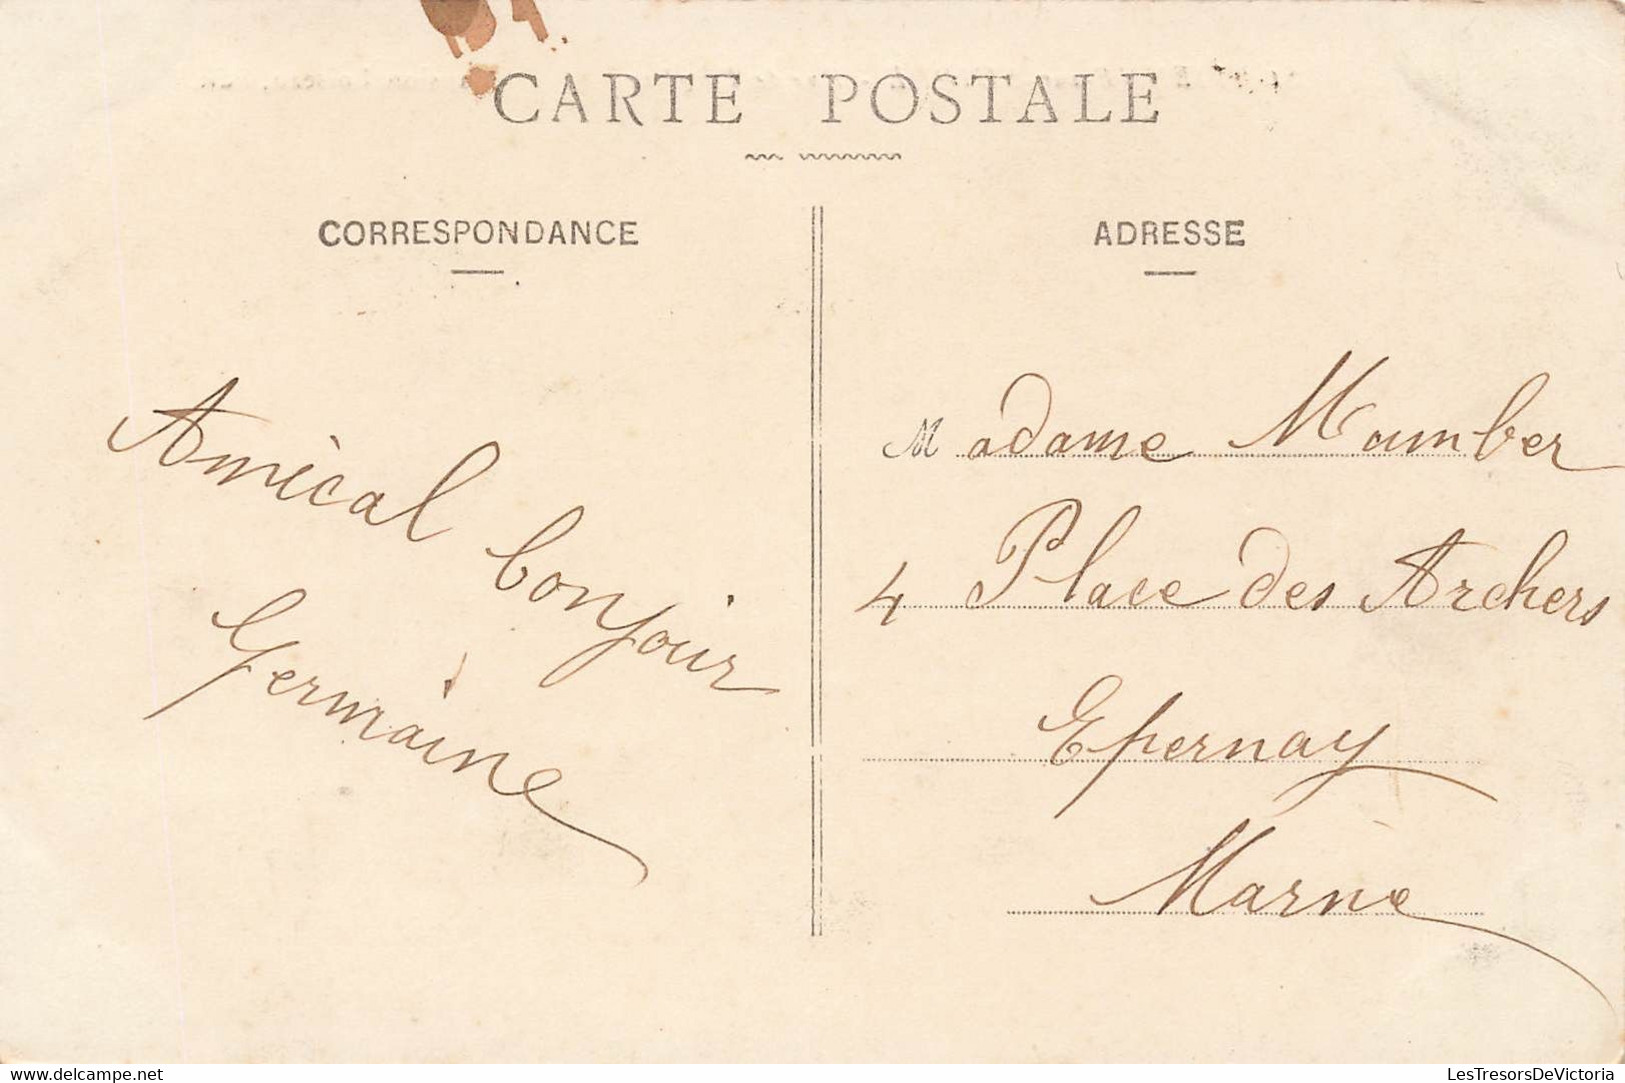 CARTE POSTALE
CORRESPONDANCE
ADRESSE
Amical bonjour
Germaine
Madame Mumber
4 Place des Archers
Epernay
Marne
www.delcampe.net
LesTresorsDeVictoria